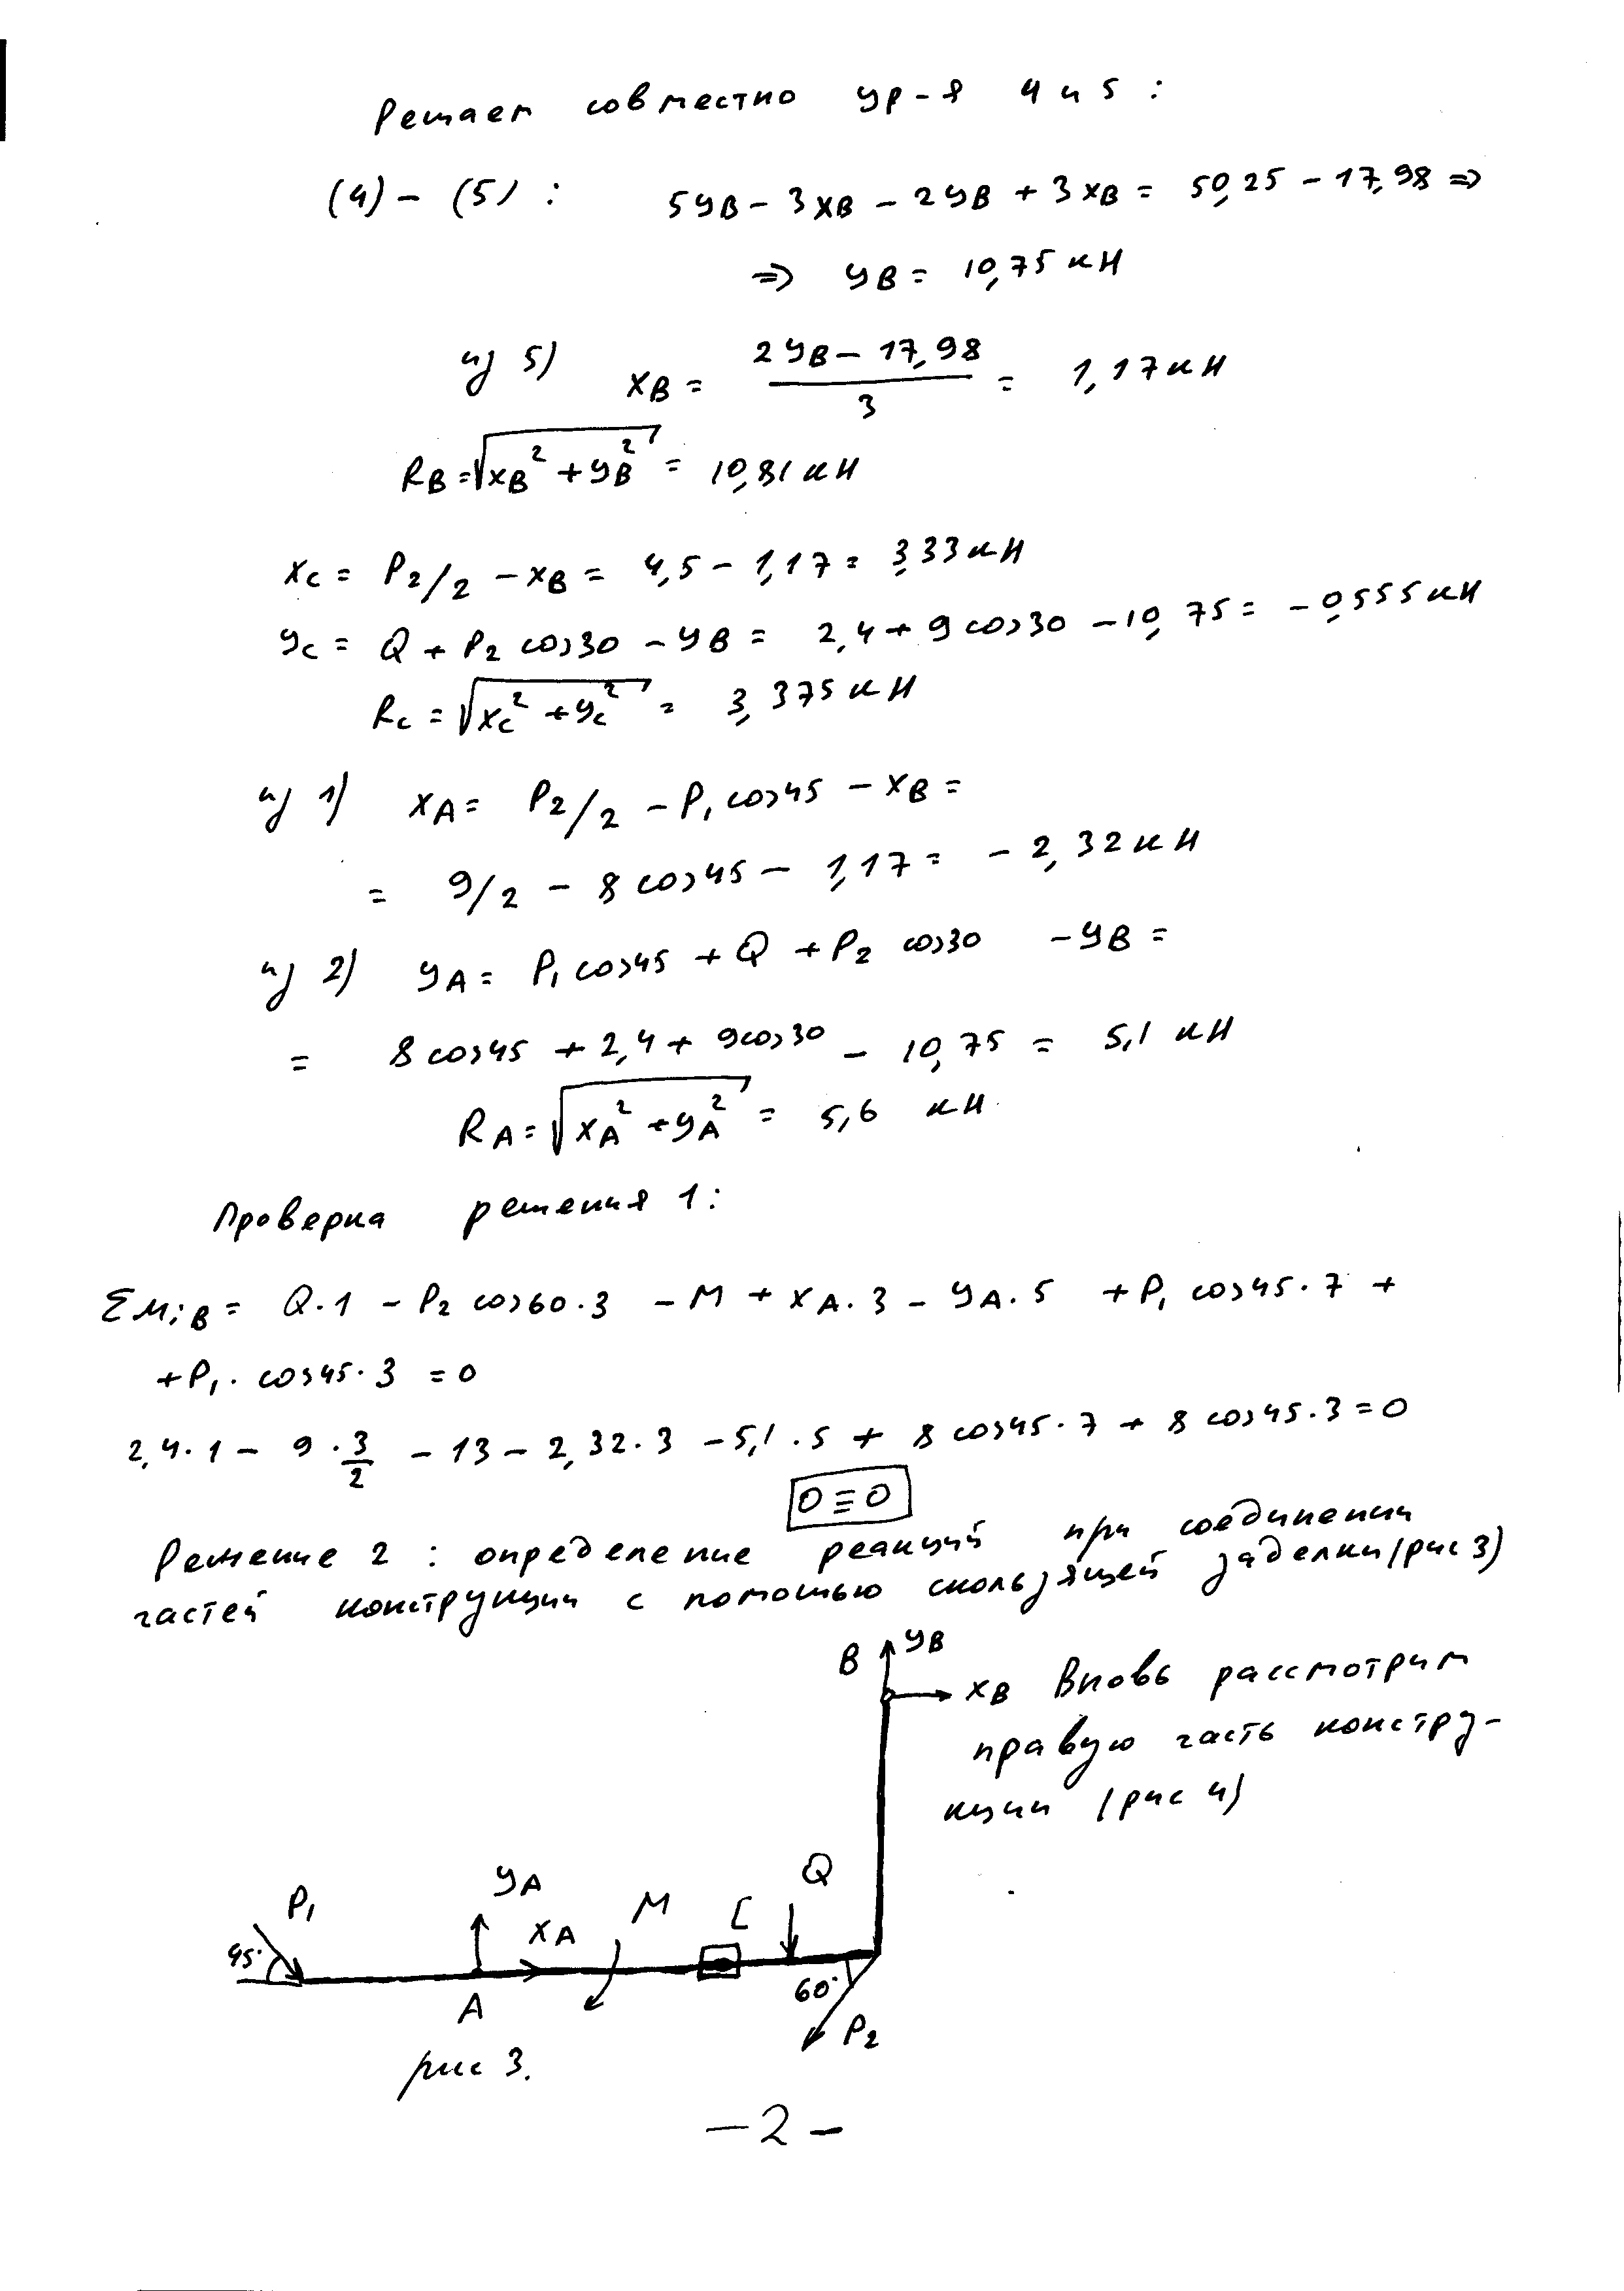 Решаем совместно ур-я 4 и 5 :
(4) - (5) : 5yB - 3xB - 2yB + 3xB = 50,25 - 17,98 ⇒
⇒ yB = 10,75 кН
из 5) xB = (2yB - 17,98)/3 = 1,17 кН
RB = √(xB² + yB²) = 10,81 кН
xC = P2/2 - xB = 4,5 - 1,17 = 3,33 кН
yC = Q + P2 cos30 - yB = 2,4 + 9 cos30 - 10,75 = - 0,555 кН
RC = √(xC² + yC²) = 3,375 кН
из 1) xA = P2/2 - P1 cos45 - xB =
= 9/2 - 8 cos45 - 1,17 = - 2,32 кН
из 2) yA = P1 cos45 + Q + P2 cos30 - yB =
= 8 cos45 + 2,4 + 9cos30 - 10,75 = 5,1 кН
RA = √(xA² + yA²) = 5,6 кН
Проверка решения 1 :
ΣMiB = Q·1 - P2 cos60·3 - M + xA·3 - yA·5 + P1 cos45·7 +
+ P1· cos45·3 = 0
2,4·1 - 9·3/2 - 13 - 2,32·3 - 5,1·5 + 8 cos45·7 + 8 cos45·3 = 0
0 ≡ 0
Решение 2 : определение реакций при соединении
частей конструкции с помощью скользящей заделки (рис 3)
B yB
xB Вновь рассмотрим
правую часть констру-
кции (рис 4)
P1 yA xA M C Q
45°
A
60°
P2
рис 3.
- 2 -